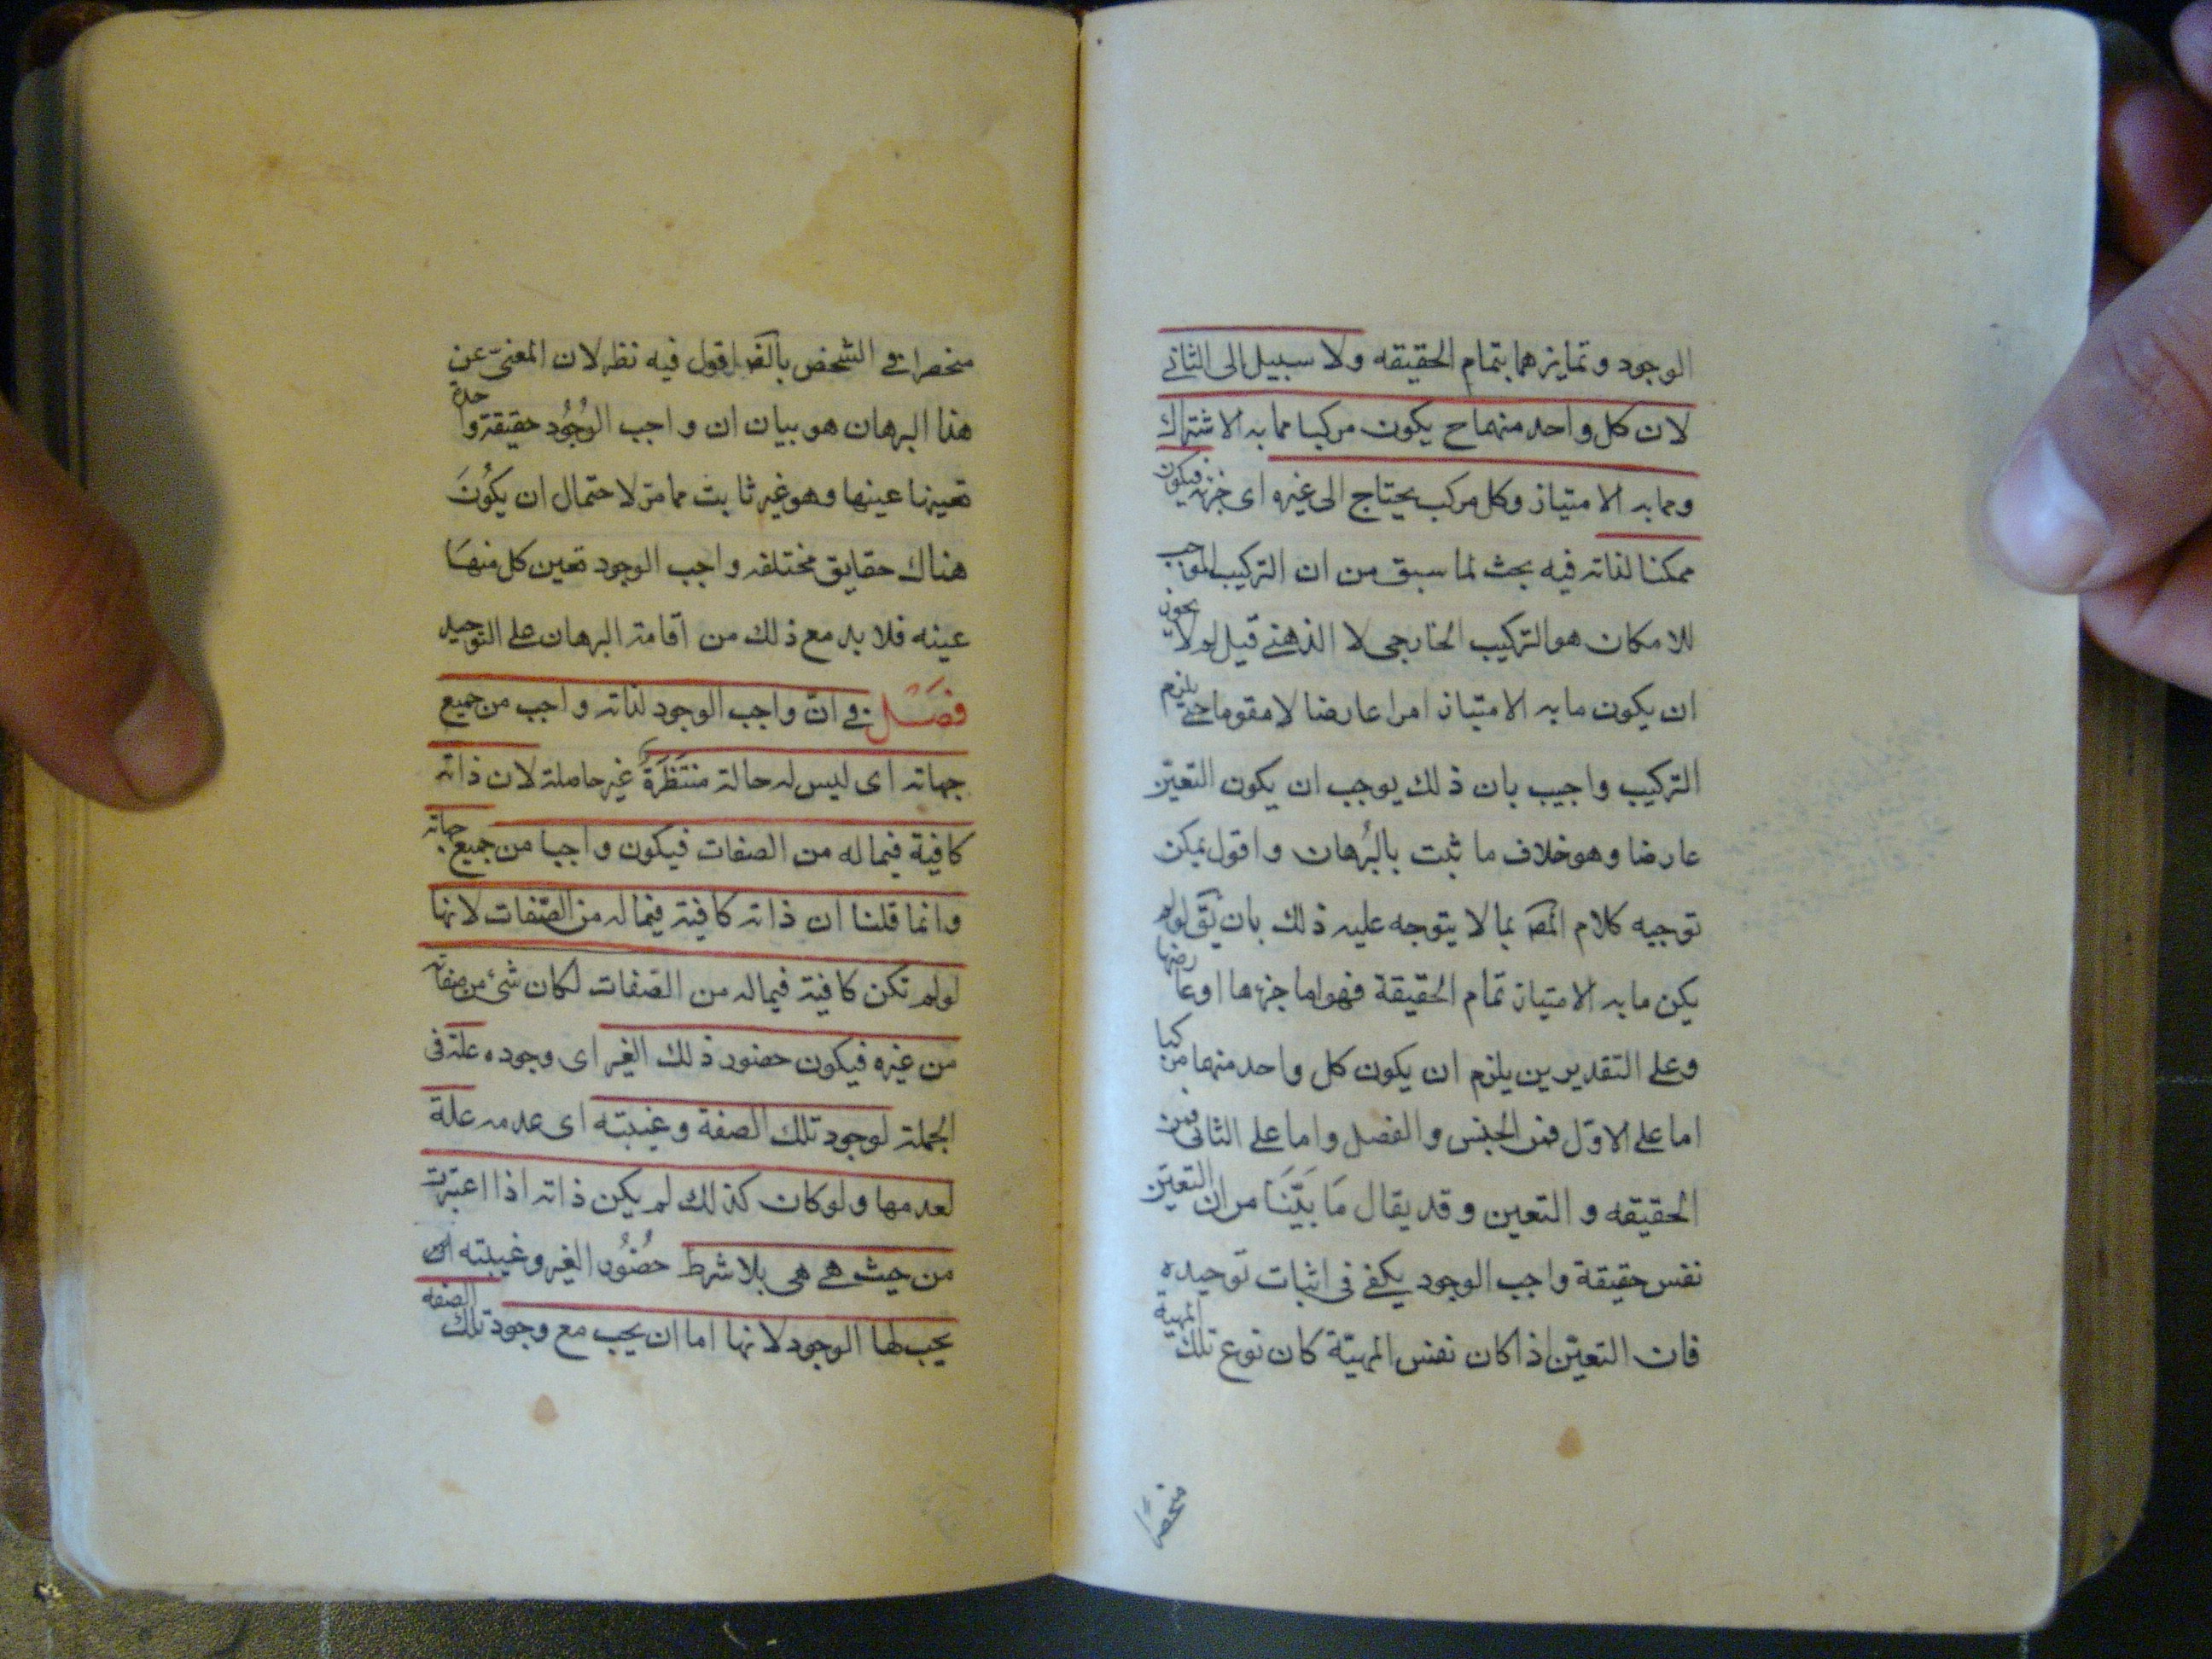 الوجود وتمايزهما بتمام الحقيقه ولا سبيل الى الثانى
لان كل واحد منهما ح يكون مركبا مما به الاشتراك
ومما به الامتياز وكل مركب يحتاج الى غيره اى جزئه فيكون
ممكنا لذاته فيه بحث لما سبق من ان التركيب الموجب
للامكان هو التركيب الخارجى لا الذهنى قيل لم لا يجوز
ان يكون ما به الامتياز امرا عارضا لا مقوما حتى يلزم
التركيب واجيب بان ذلك يوجب ان يكون التعيّن
عارضا وهو خلاف ما ثبت بالبُرهان واقول يمكن
توجيه كلام المصَ بما لا يتوجه عليه ذلك بان يقَ لو لم
يكن ما به الامتياز تمام الحقيقة فهو اما جزءها او عارضها
وعلى التقديرين يلزم ان يكون كل واحد منهما مركبا
اما على الاوّل فمن الجنس والفصل واما على الثانى فمن
الحقيقه والتعين وقد يقال مَا بَيَّنَا من ان التعيّن
نفس حقيقة واجب الوجود يكفى فى اثبات توحيده
فان التعيّن اذا كان نفس المهيّة كان نوع تلك المهية
منحصرا
منحصرا فى الشخص بالضَ اقول فيه نظر لان المعنىّ عن
هذا البرهان هو بيان ان واجب الوُجُود حقيقة واحدة
تعينها عينها وهو غير ثابت مما مرّ لاحتمال ان يكوُنَ
هناك حقايق مختلفه واجب الوجود تعين كل منهَا
عينه فلا بد مع ذلك من اقامة البرهان على التوحيد
فصَل فى انّ واجب الوجود لذاته واجب من جميع
جهاته اى ليس له حالة منتَظَرَةُ غير حاصلة لان ذاته
كافية فيما له من الصفات فيكون واجبا من جميع جهاته
وانما قلنا ان ذاته كافية فيما له من الصّفات لانها
لو لم تكن كافية فيما له من الصّفات لكان شئ من صفاته
من غيره فيكون حضور ذلك الغير اى وجوده علة فى
الجملة لوجود تلك الصفة وغيبته اى عدمه علة
لعدمها ولو كان كذلك لم يكن ذاته اذا اعتبرت
من حيث هى هى بلا شرط حُضوُر الغير وغيبته ان
يجب لها الوجود لانها اما ان يجب مع وجود تلك الصفه